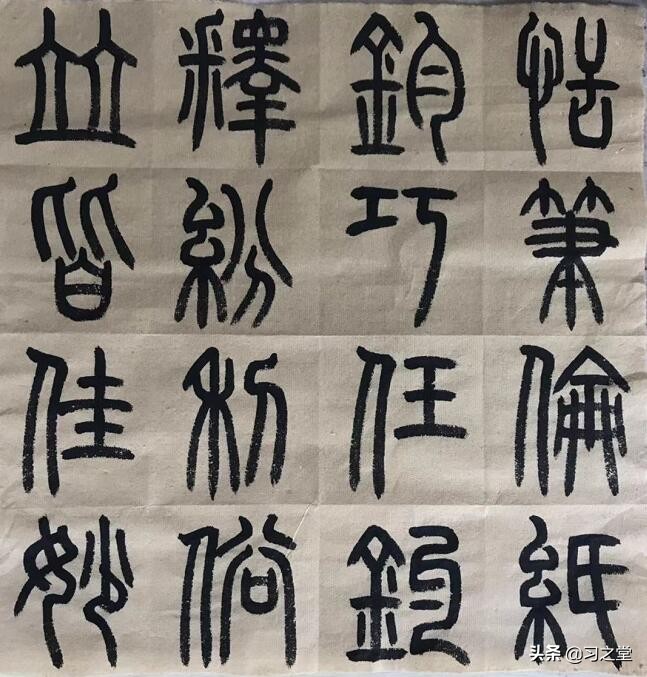 恬筆倫紙
鈞巧任釣
釋紛利俗
並皆佳妙
头条 @习之堂